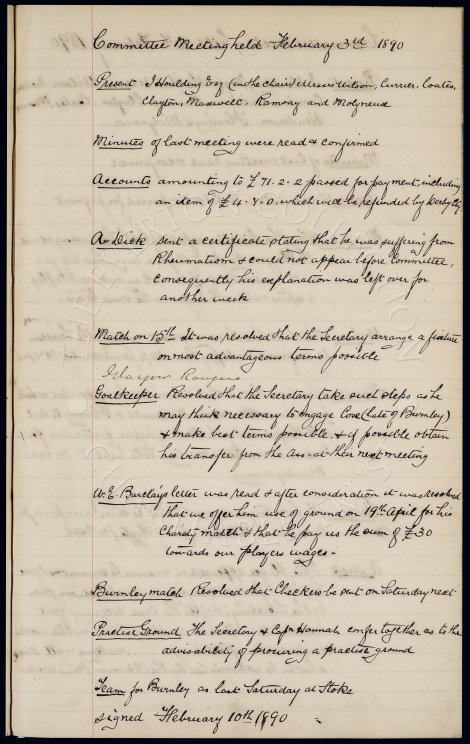 Committee Meeting held February 3rd 1890
Present J Houlding Esq (in the chair) Messrs Wilson, Currier, Coates,
Clayton, Maxwell, Ramsay and Molyneux
Minutes of last meeting were read & confirmed
Accounts amounting to £71.2.2 passed for payment, including
an item of £4.7.0, which will be refunded by Derby Cy
A. Dick sent a certificate stating that he was suffering from
Rheumatism & could not appear before Committee,
consequently his explanation was left over for
another week
Match on 15th It was resolved that the Secretary arrange a fixture
on most advantageous terms possible
Glasgow Rangers
Goalkeeper Resolved that the Secretary take such steps as he
may think necessary to engage Cox (late of Burnley)
& make best terms possible & if possible obtain
his transfer from the Ass. at their next meeting
W. E. Barclays letter was read & after consideration it was resolved
that we offer him use of ground on 19th April for his
Charity match & that he pay us the sum of £30
towards our players wages.
Burnley match Resolved that Checkers be sent on Saturday next
Practise Ground The Secretary & Capn Hannah confer together as to the
advisability of procuring a practise ground
Team for Burnley as last Saturday at Stoke
Signed February 10th 1890